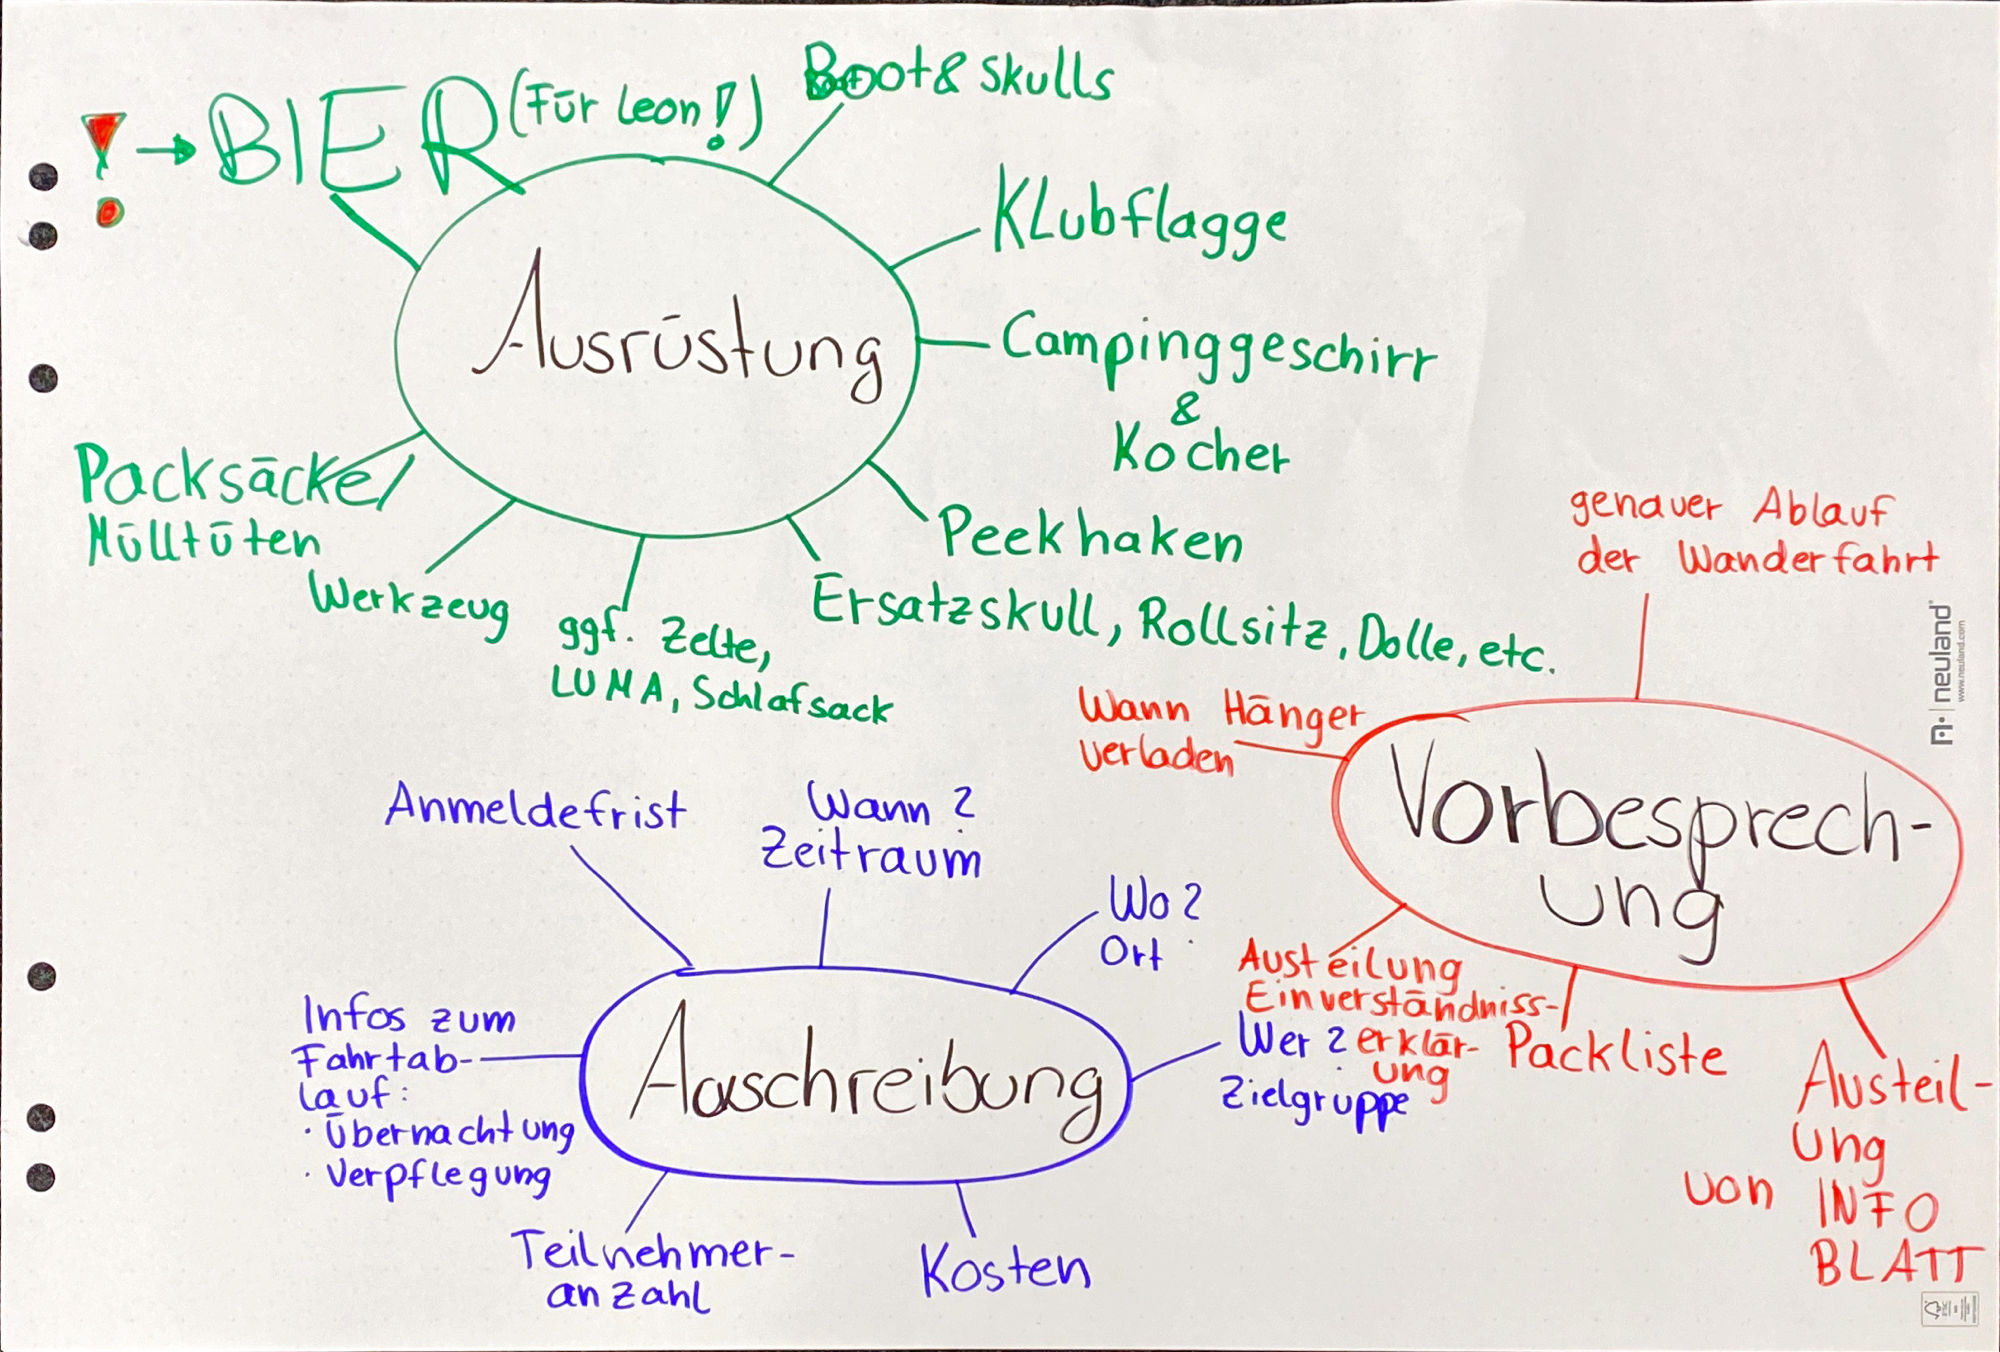 ! → BIER (Für Leon!)
Boot & Skulls
Klubflagge
Campinggeschirr
&
Kocher
Peekhaken
Ersatzskull, Rollsitz, Dolle, etc.
ggf. Zelte,
LUMA, Schlafsack
Werkzeug
Packsäcke/
Mülltüten
Ausrüstung
genauer Ablauf
der Wanderfahrt
Wann Hänger
verladen
Vorbesprech-
ung
Austeilung
Einverständniss-
erklär-
ung
Packliste
Austeil-
ung
von INFO
BLATT
Anmeldefrist
Wann?
Zeitraum
Wo?
Ort
Wer?
Zielgruppe
Kosten
Teilnehmer-
anzahl
Infos zum
Fahrtab-
lauf:
· Übernachtung
· Verpflegung
Aaschreibung
neuland
www.neuland.com